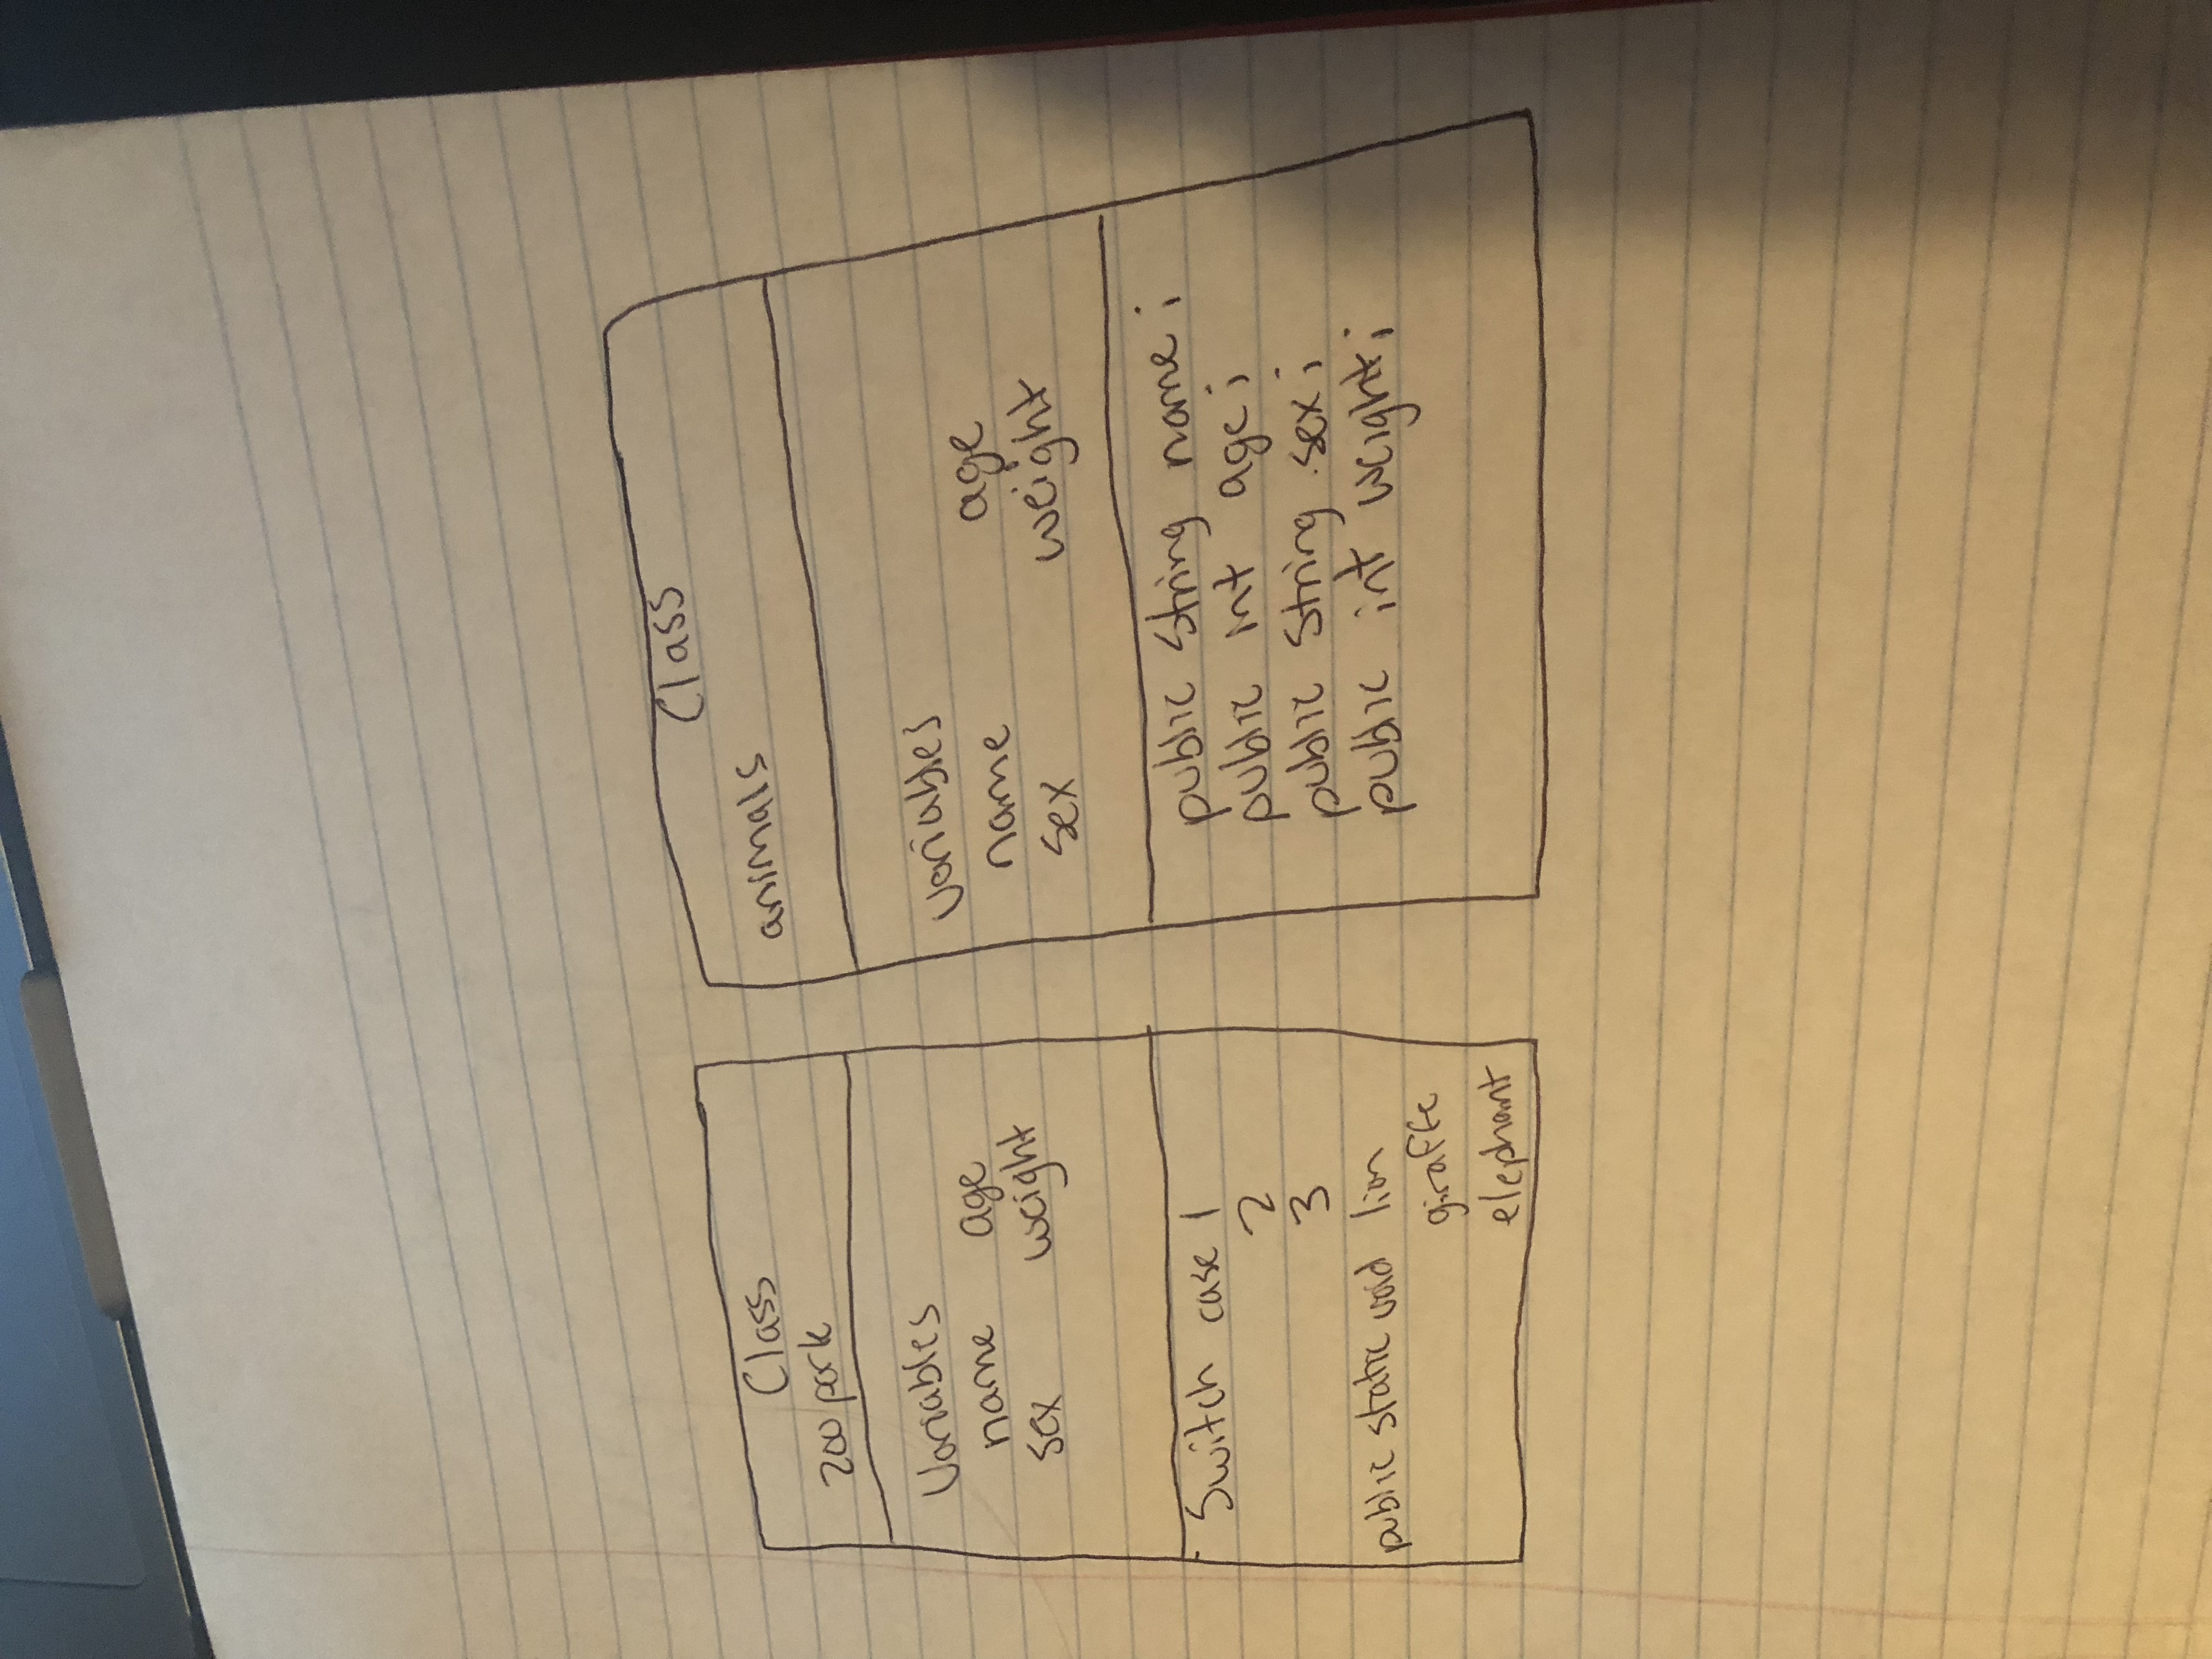 Class
zoo park
Variables
name age
sex weight
Switch case 1
2
3
public static void lion
giraffe
elephant
Class
animals
variables
name age
sex weight
public String name;
public int age;
public String sex;
public int weight;